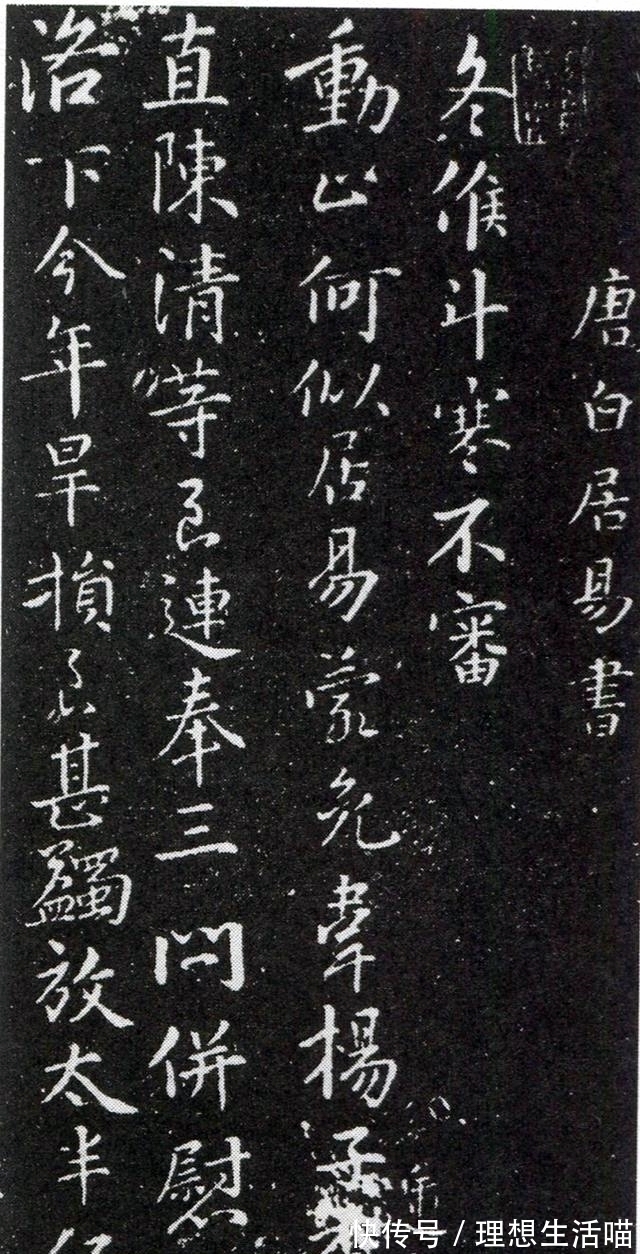 唐白居易書
冬候斗寒不審
動止何似居易蒙免韋楊子
直陳清等至連奉三問併慰
洛下今年旱損至甚蠲放太半
快传号/理想生活喵